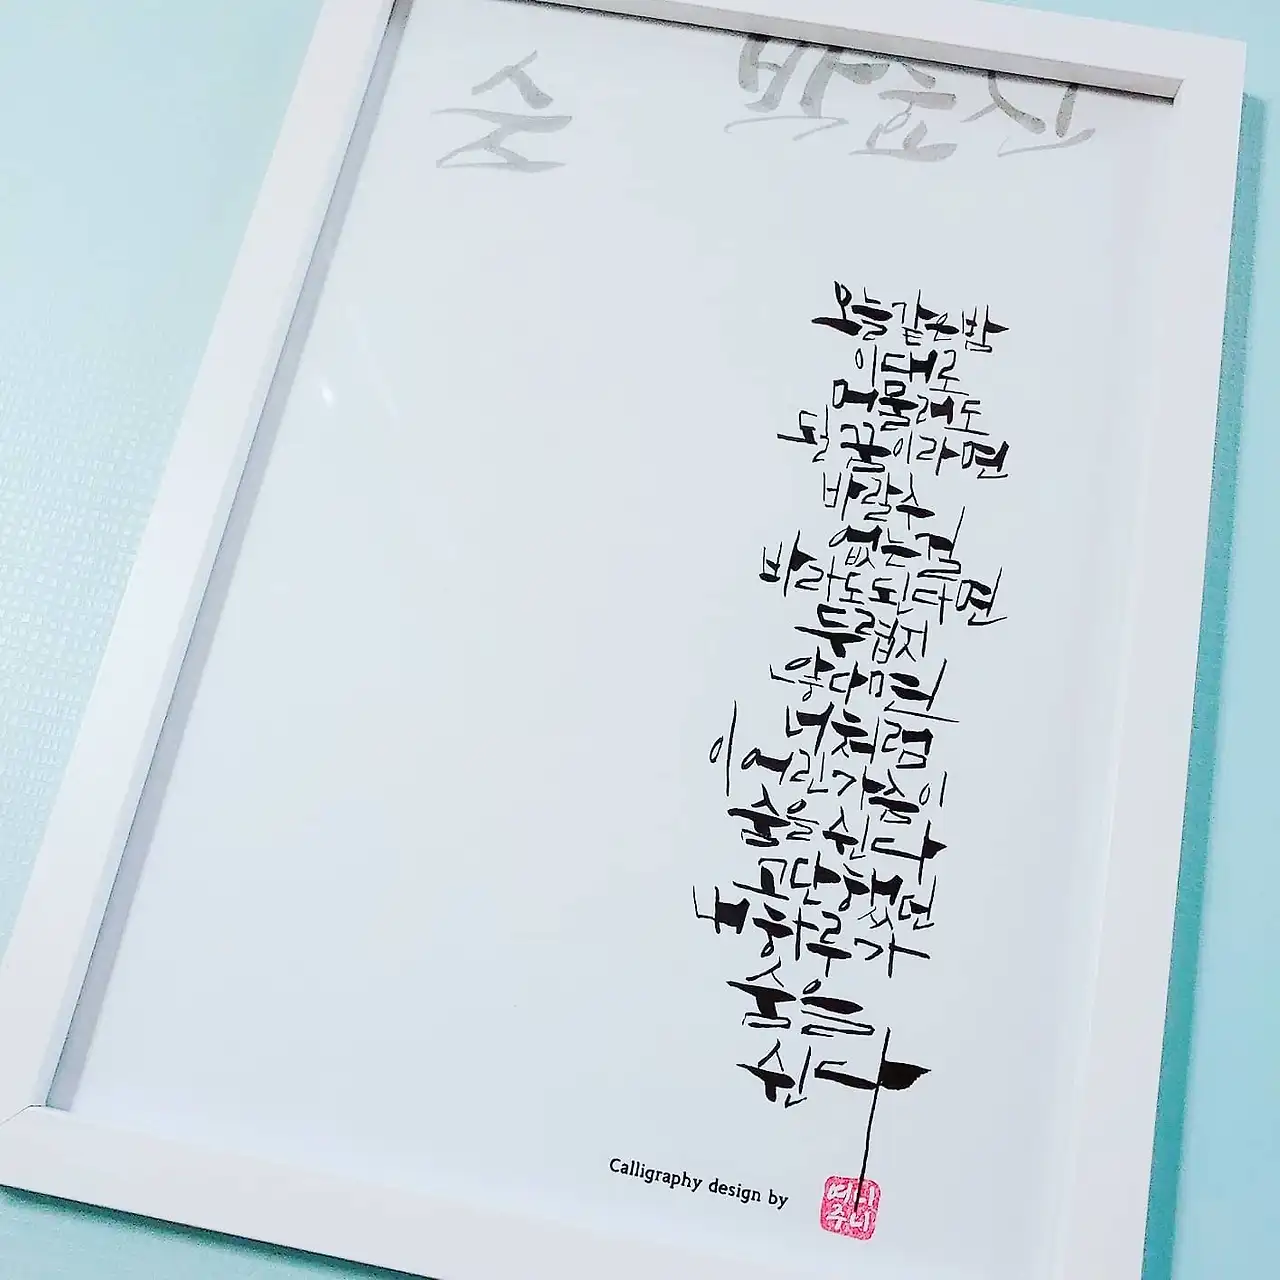 숨 박효신
오늘같은밤
이대로
머물러도
될 꿈이라면
바랄수
없는걸
바라도된다면
두렵지
않다면
너처럼
이 어린가슴이
숨을 쉰다
고단했던
내 하루가
숨을
쉰다
Calligraphy design by